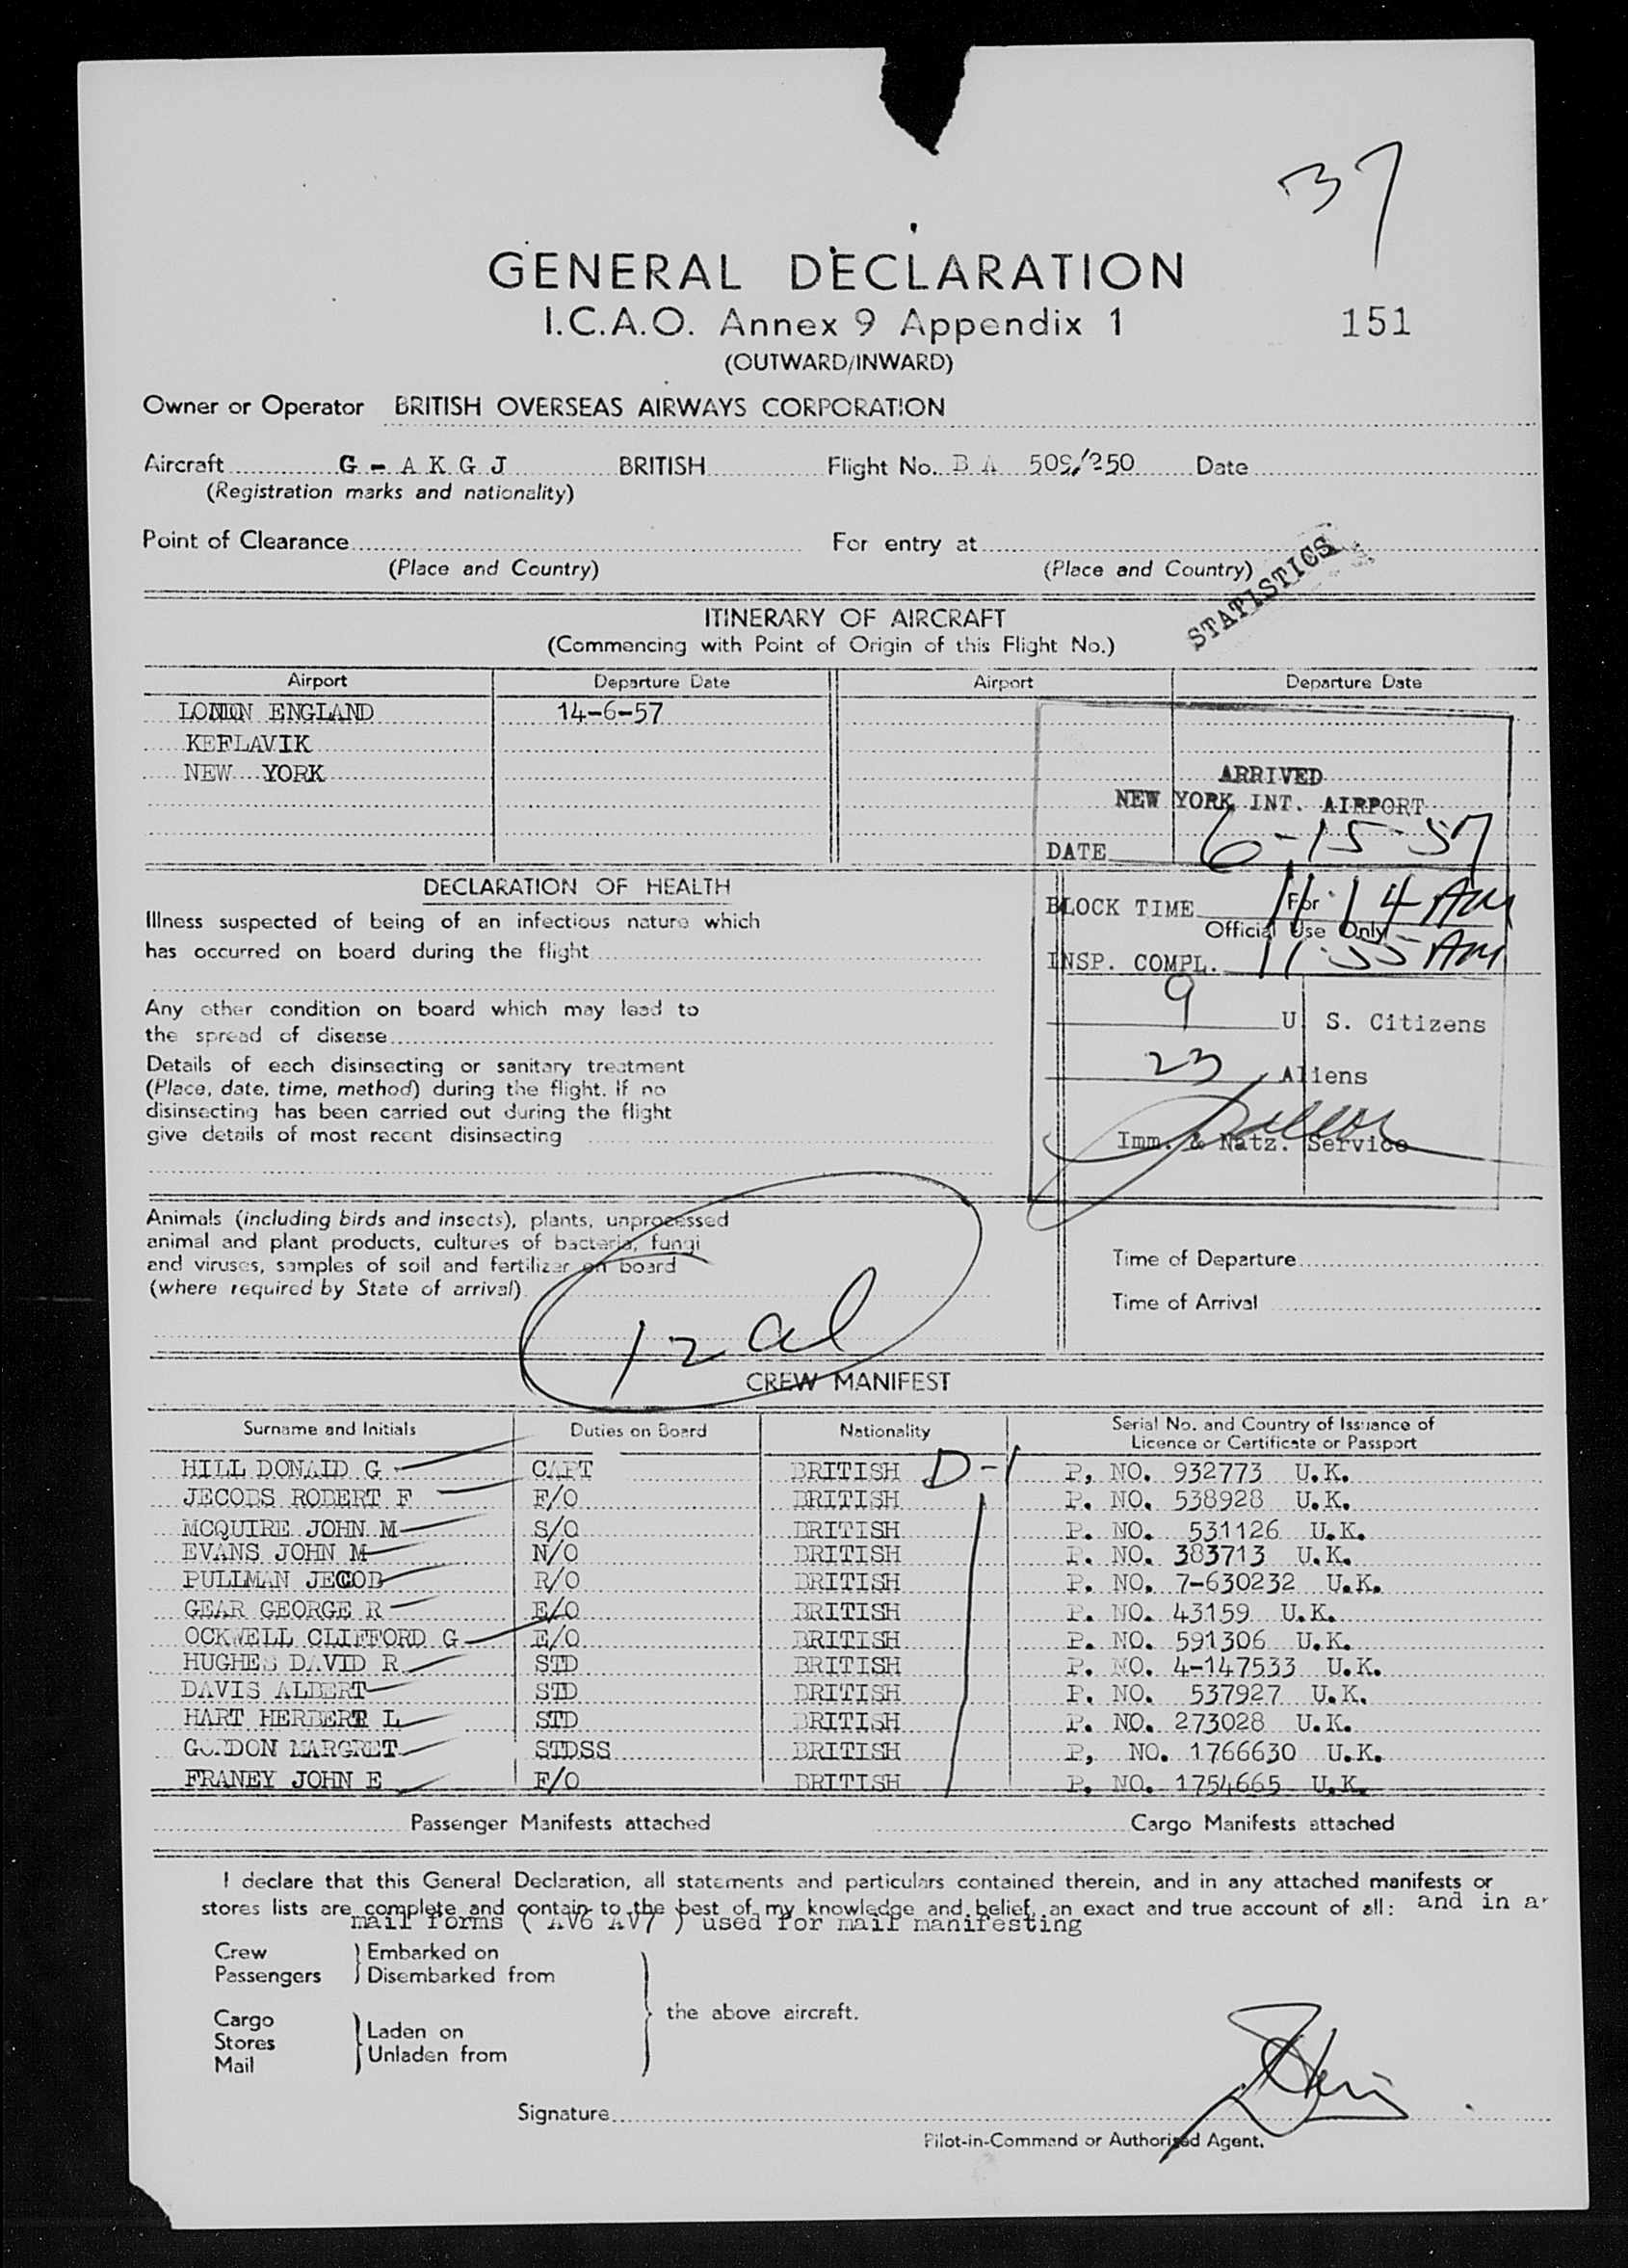 37
GENERAL DECLARATION
I.C.A.O. Annex 9 Appendix 1
151
(OUTWARD/INWARD)
Owner or Operator BRITISH OVERSEAS AIRWAYS CORPORATION
Aircraft G - A K G J BRITISH Flight No. B A 509/250 Date
(Registration marks and nationality)
Point of Clearance For entry at
(Place and Country) (Place and Country)
STATISTICS
ITINERARY OF AIRCRAFT
(Commencing with Point of Origin of this Flight No.)
Airport Departure Date Airport Departure Date
LONDON ENGLAND 14-6-57
KEFLAVIK
NEW YORK
ARRIVED
NEW YORK INT. AIRPORT
DATE 6-15-57
DECLARATION OF HEALTH
BLOCK TIME 11:14 AM
For
Official Use Only
INSP. COMPL. 11:55 AM
Illness suspected of being of an infectious nature which
has occurred on board during the flight
9 U. S. Citizens
Any other condition on board which may lead to
the spread of disease
23 Aliens
Details of each disinsecting or sanitary treatment
(Place, date, time, method) during the flight. If no
disinsecting has been carried out during the flight
give details of most recent disinsecting
Imm. & Natz. Service
Animals (including birds and insects), plants, unprocessed
animal and plant products, cultures of bacteria, fungi
and viruses, samples of soil and fertilizer on board
(where required by State of arrival)
Time of Departure
Time of Arrival
12 al
CREW MANIFEST
Surname and Initials Duties on Board Nationality Serial No. and Country of Issuance of
Licence or Certificate or Passport
HILL DONALD G CAPT BRITISH D-1 P, NO. 932773 U.K.
JECOBS ROBERT F F/O BRITISH P. NO. 538928 U.K.
MCQUIRE JOHN M S/O BRITISH P. NO. 531126 U.K.
EVANS JOHN M N/O BRITISH P. NO. 383713 U.K.
PULLMAN JECOB R/O BRITISH P. NO. 7-630232 U.K.
GEAR GEORGE R E/O BRITISH P. NO. 43159 U.K.
OCKWELL CLIFFORD G E/O BRITISH P. NO. 591306 U.K.
HUGHES DAVID R STD BRITISH P. NO. 4-147533 U.K.
DAVIS ALBERT STD BRITISH P. NO. 537927 U.K.
HART HERBERT L STD BRITISH P. NO. 273028 U.K.
GORDON MARGRET STDSS BRITISH P, NO. 1766630 U.K.
FRANEY JOHN E F/O BRITISH P. NO. 1754665 U.K.
Passenger Manifests attached Cargo Manifests attached
I declare that this General Declaration, all statements and particulars contained therein, and in any attached manifests or
stores lists are complete and contain to the best of my knowledge and belief, an exact and true account of all: and in a
mail forms ( AV6 AV7 ) used for mail manifesting
Crew Embarked on
Passengers Disembarked from
the above aircraft.
Cargo
Stores Laden on
Mail Unladen from
Signature
Pilot-in-Command or Authorised Agent.